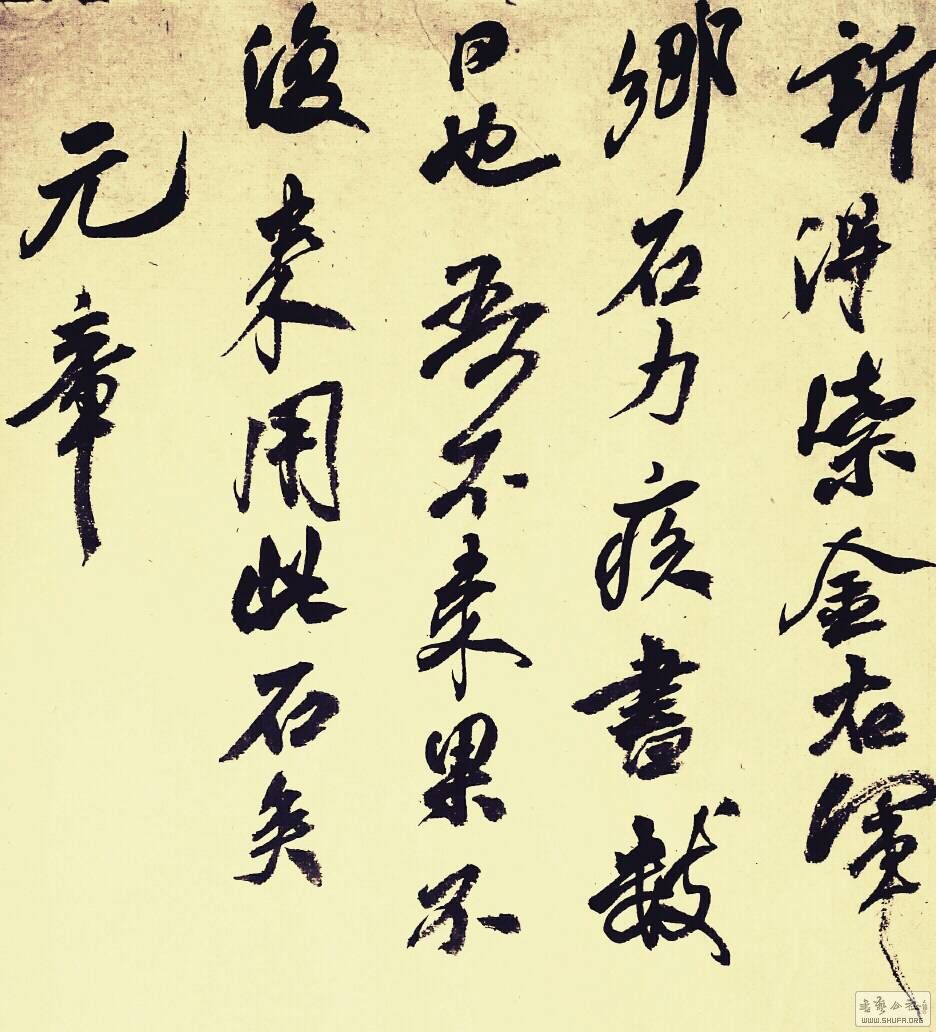 新得紫金右軍
鄉石力疾書數
日也吾不來果不
復來用此石矣
元章
WWW.SHUFA.ORG